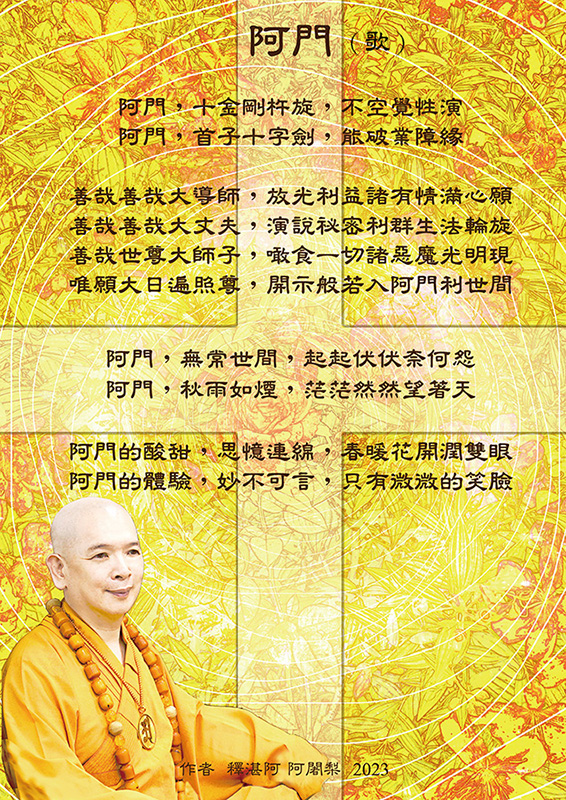 阿門（歌）
阿門，十金剛杵旋，不空覺性演
阿門，首子十字劍，能破業障緣
善哉善哉大導師，放光利益諸有情滿心願
善哉善哉大丈夫，演說祕密利群生法輪旋
善哉世尊大師子，噉食一切諸惡魔光明現
唯願大日遍照尊，開示般若入阿門利世間
阿門，無常世間，起起伏伏奈何怨
阿門，秋雨如煙，茫茫然然望著天
阿門的酸甜，思憶連綿，春暖花開潤雙眼
阿門的體驗，妙不可言，只有微微的笑臉
作者 釋湛阿 阿闍梨 2023